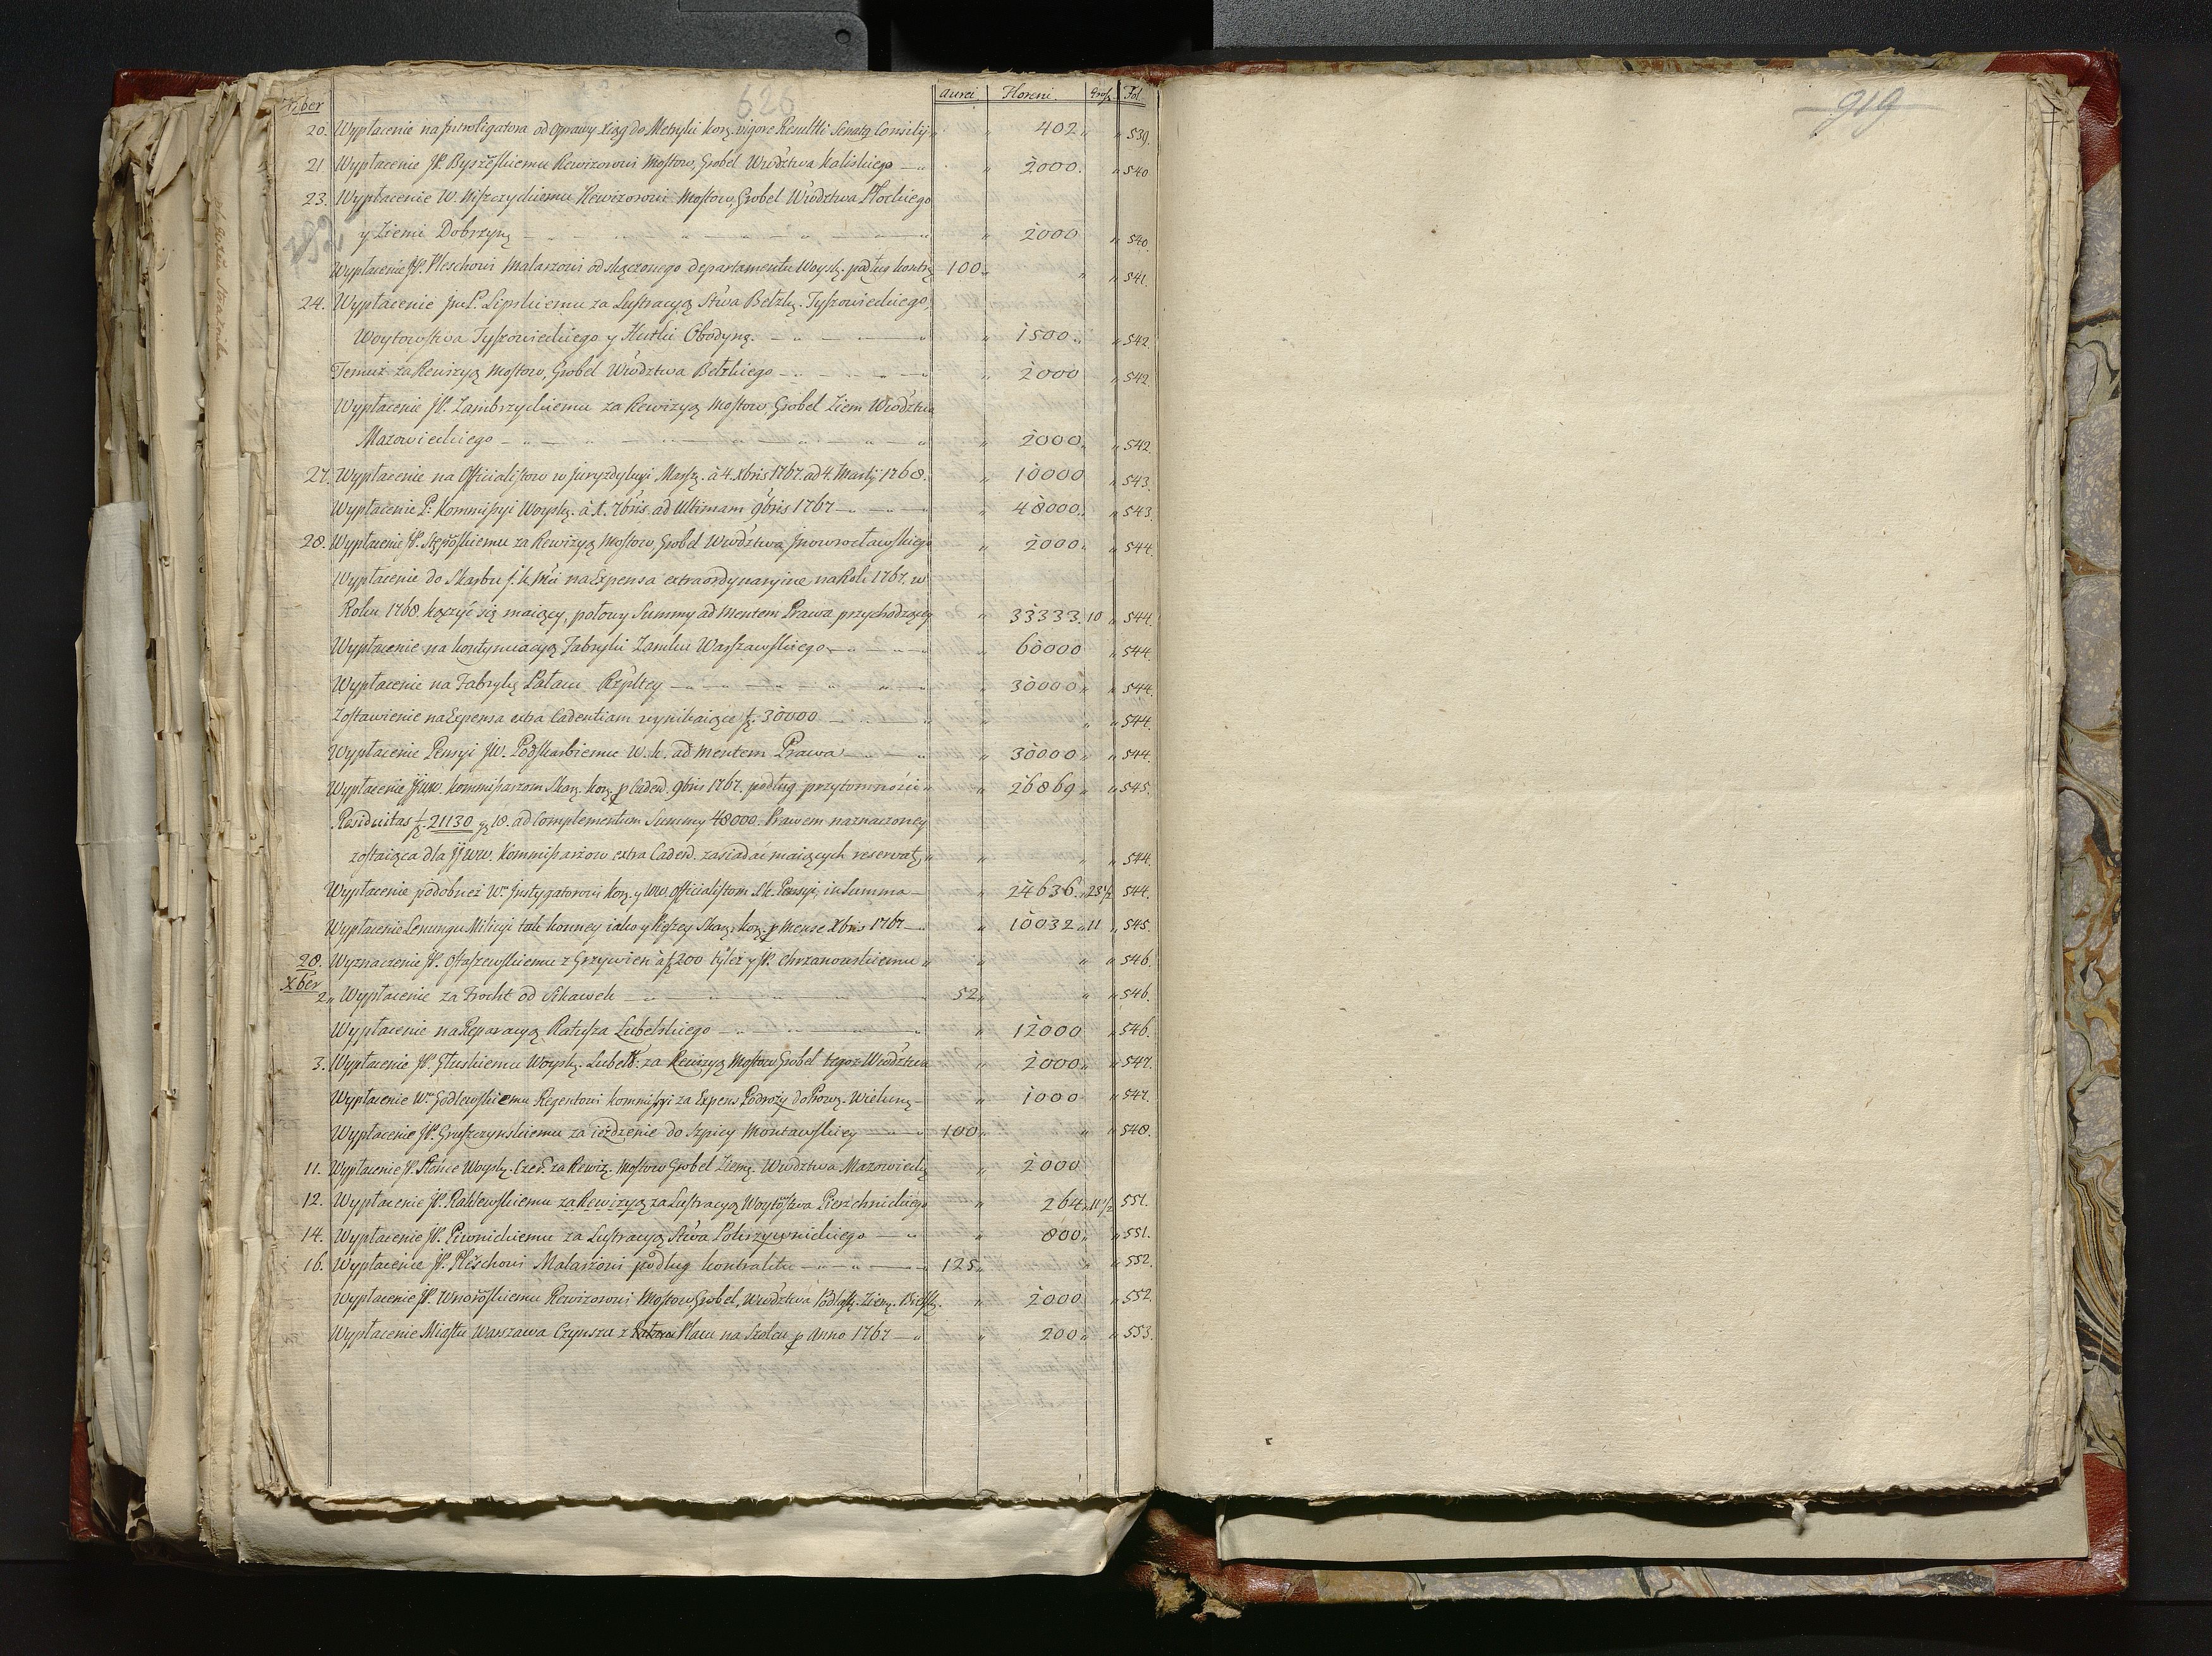 626
919
9ber
aurei. Floreni. Grosz. Fol.
20. Wypłacenie na Introligatora od Oprawy Xiąg do Metryki Kor. vigore Resultti Senatq Consilij " 402 " " 539.
21 Wypłacenie JP. Byszesskiemu Rewizorowi Mostow, Grobel Wwdztwa Kaliskiego " 2000. " 540
23. Wypłacenie W. Niszczyckiemu Rewizorowi Mostow, Grobel Wwdztwa Płockiego
y Ziemi Dobrzyn " 2000 " 540.
Wypłacenie JP. Pleschowi Malarzowi od skączonego departamentu Woysk. podług kontr. 100 " " " 541.
24. Wypłacenie Jm P. Lipskiemu za Lustracyą Stwa Bełzk. Tyszowieckiego,
Woytowstwa Tyszowieckiego y Hutki Obodyn. " 1500 " " 542.
Temuż za Rewizyą Mostow, Grobel Wwdztwa Bełzkiego " 2000 " 542.
Wypłacenie JP. Zambrzyckiemu za Rewizyą Mostow Grobel Ziem Wwdztwa
Mazowieckiego " 2000 " " 542
27. Wypłacenie na Officialistow w Juryzdykcyi Marsz. à 4. Xbris 1767. ad 4. Martij 1768. " 10000 " 543.
Wypłacenie P. Kommissyi Woysk. à 1. 7bris ad Ultimam 9bris 1767 " 48000 " " 543.
28. Wypłacenie JP. za Rewizyą Mostow, Grobel Wwdztwa Jnowrocławskiego " 2000 " " 544.
Wypłacenie do Skarbu J. K Mci na Expensa extraordynaryine na Rok 1767. w
Roku 1768. kączyć się maiący, połowy Summy ad Mentem Prawa przychodzącey " 33333. 10 " 544.
Wypłacenie na kontynuacyą Fabryki Zamku Warszawskiego " 60000 " 544.
Wypłacenie na Fabrykę Pałacu Rzpltey " 30000 " " 544.
Zostawienie na Expensa extra Cadentiam wynikaiące fl. 30000 " " " 544.
Wypłacenie Pensyi JW. Podskarbiemu W. K. ad mentem Prawa " 30000 " " 544.
Wypłacenie JJWW. Kommissarzom Skar. Kor. p Caden. 9bris 1767. podług przytomności " " 26869 " " 545.
Residuitas fl. 21130 g 18. ad Complementum Summy 48000. Prawem naznaczoney
zostaiąca dla JJWW. Kommissarzow extra Caden. zasiadać maiących reservat. " " " " 544.
Wypłacenie podobnież Wm Jnstygatorowi Kor. y WW. Officialistom Sk. Pensyi, in Summa " 24636 " 23 1/2 544.
Wypłacenie Lenungu Milicyi tak konney iako y Pieszey Skar. Kor. p Mense Xbris 1767 " 10032 " 11 " 545.
28. Wyznaczenie JP. Ostaszewskiemu z Grzywien à fl 200 tyleż y JP. Chrzanowskiemu " " " " 546.
Xber
2 " Wypłacenie za Frocht od Sikawek 52 " " " 546.
Wypłacenie na Reparacyą Ratusza Lubelskiego " 12000 " 546.
3. Wypłacenie JP. Głuskiemu Woysk. Lubels: za Rewizyą Mostow Grobel tegoż Wwdztwa " 2000 " " 547.
Wypłacenie Wm Godlewskiemu Regentowi Kommissyi za Expens Podroży do Prow. Wielun. " 1000 " 547.
Wypłacenie JP. Gruszczynskiemu za ieżdżenie do Szpicy Montawskiey 100 " " " 548.
11. Wypłacenie JP. Słońce Woysk. Czer. za Rewiz. Mostow Grobel Ziem. Wwdztwa Mazowieck. " 2000
12. Wypłacenie JP. Raklewskiemu za Rewizyą za Lustracyą Woytostwa Pierzchnickiego " 264 " 11 1/2 551.
14. Wypłacenie JP. Piwnickiemu za Lustracyą Stwa Pokrzywnickiego " 800 " " 551.
16. Wypłacenie JP. Pleschowi Malarzowi podług kontraktu 125 " " " 552.
Wypłacenie JP. Rewizorowi Mostow Grobel, Wwdztwa Podlask. Ziem. Bielsk. " 2000 " 552.
Wypłacenie Miastu Warszawa Czynszu z Placu na Szolcu p Anno 1767 " 200 " " 553.